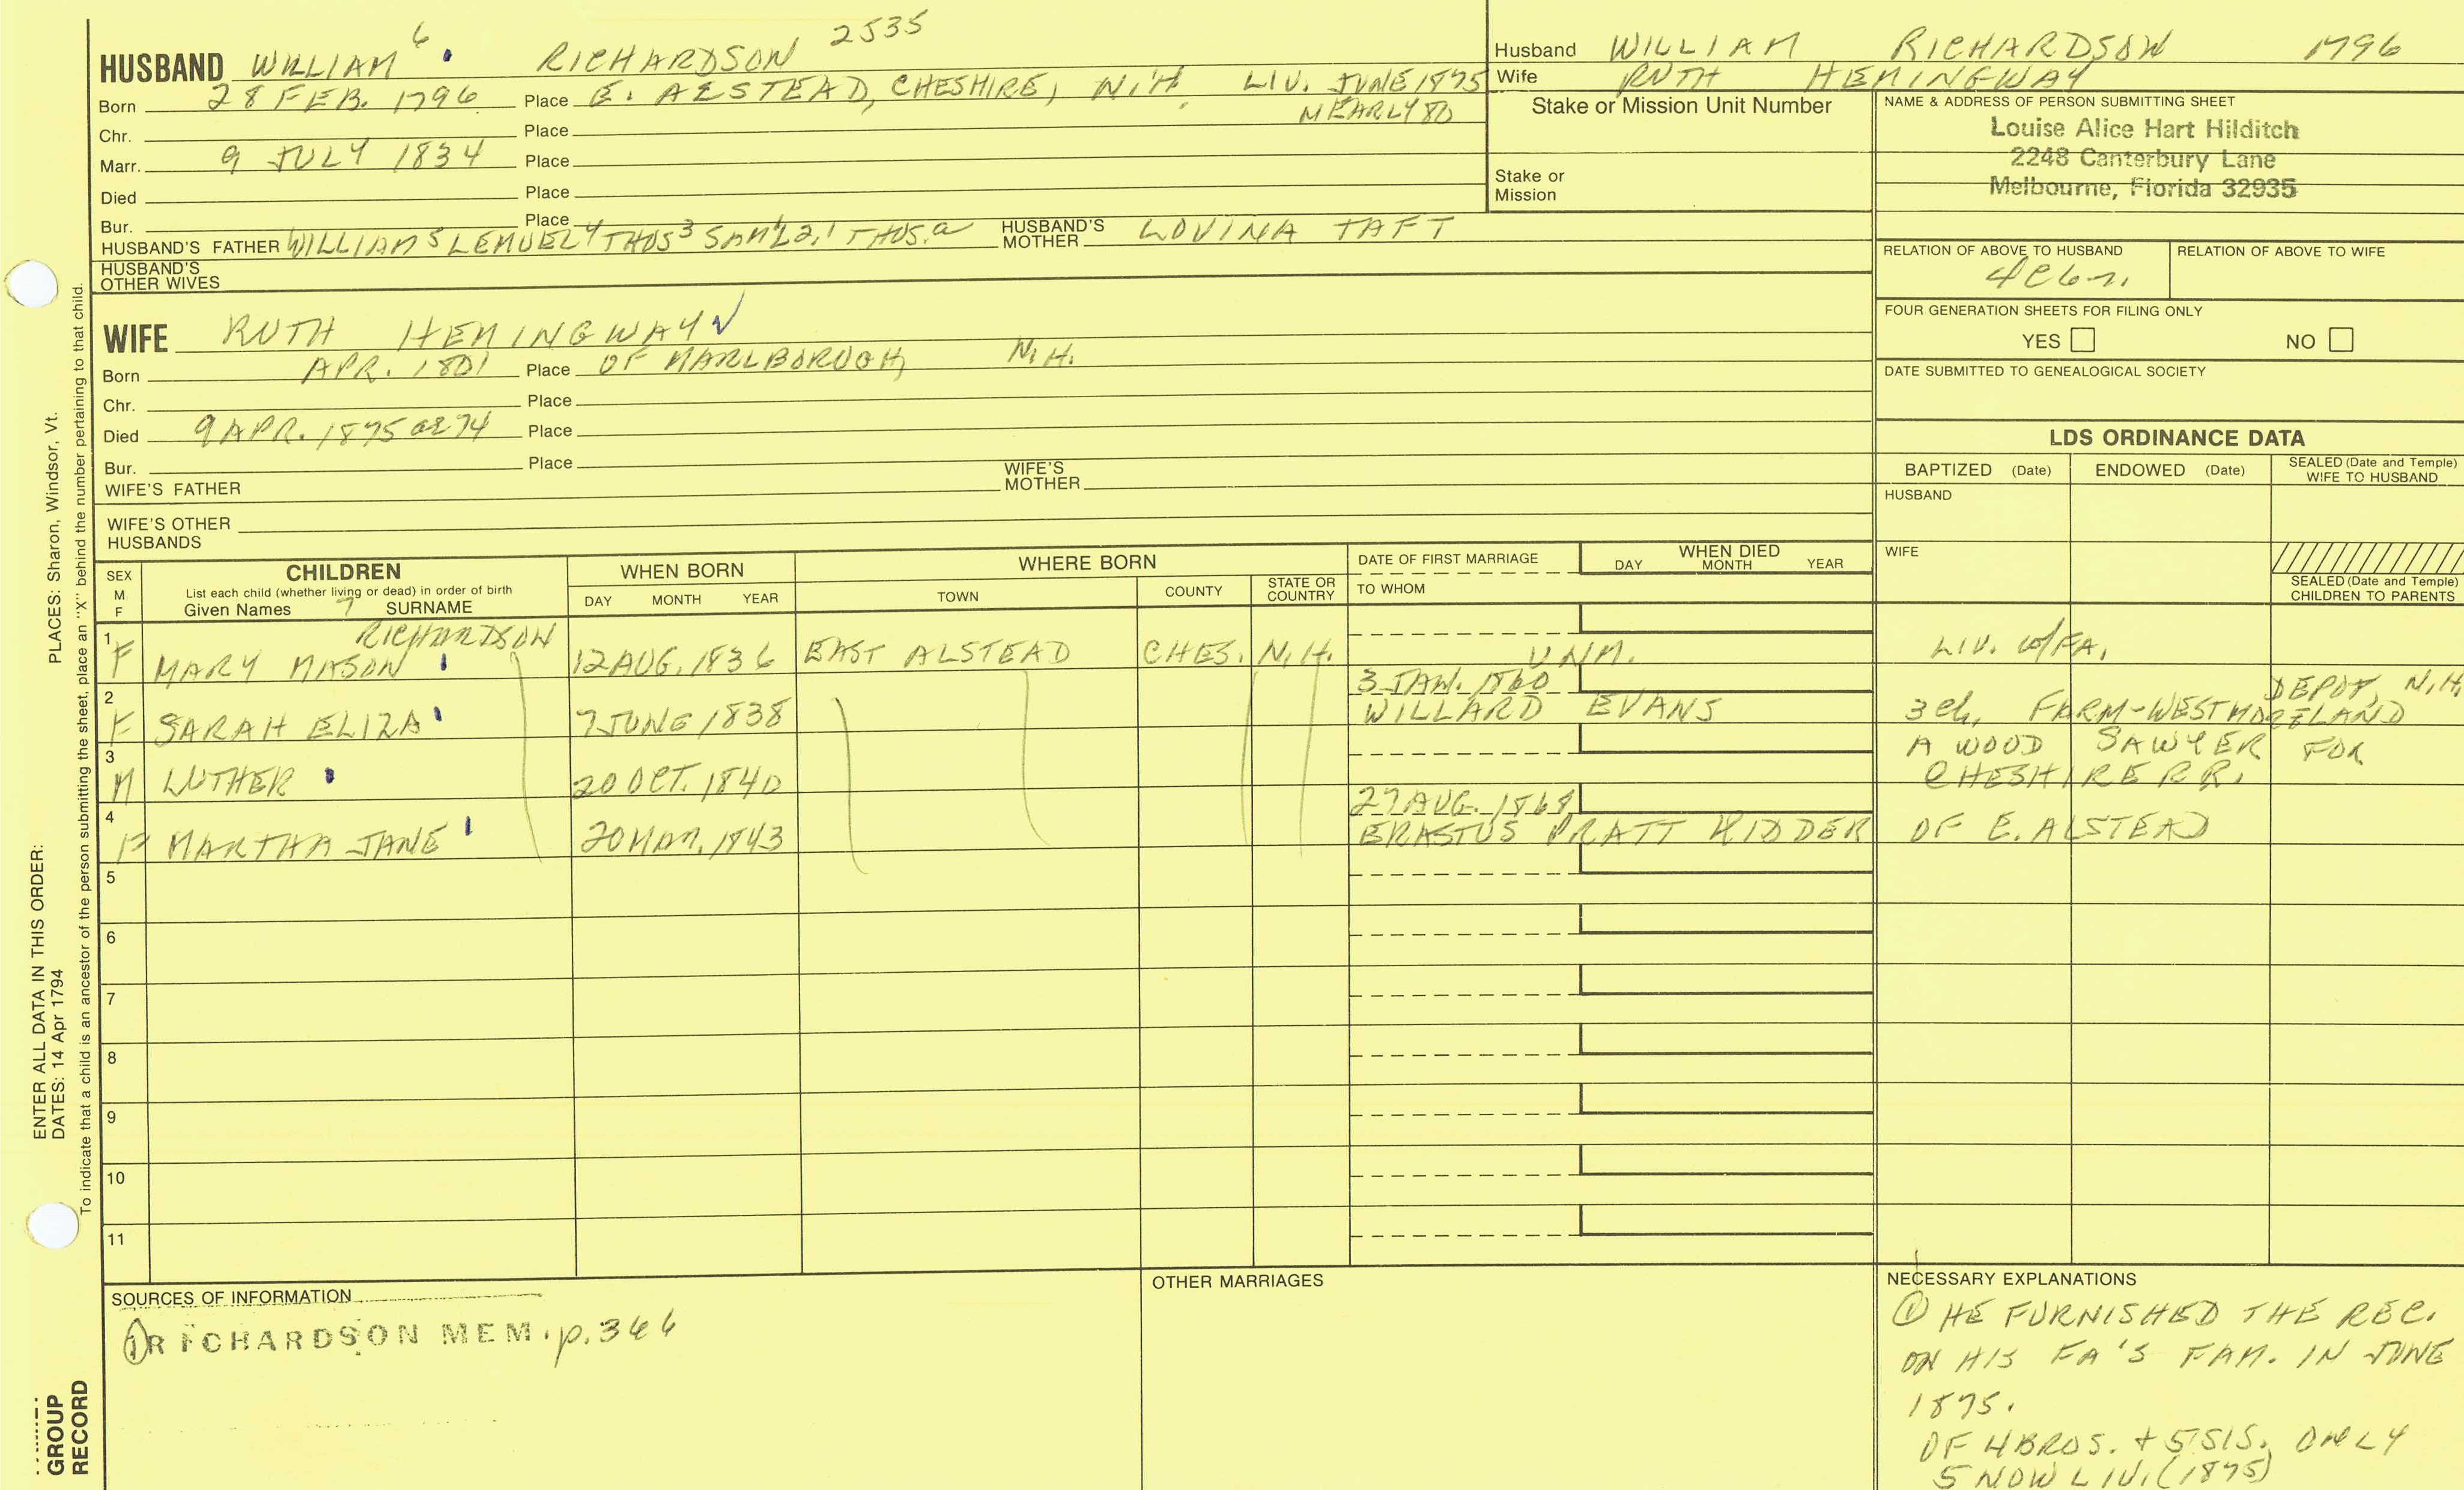 HUSBAND WILLIAM 6 RICHARDSON 2535
Born 28 FEB. 1796 Place E. ALSTEAD, CHESHIRE, N.H. LIV. JUNE 1875
NEARLY 80
Chr. Place
Marr. 9 JULY 1834 Place
Died Place
Bur. Place
HUSBAND'S FATHER WILLIAM 5 LEMUEL 4 THOS 3 SAM'L 2, 1 THOS. a HUSBAND'S MOTHER LOVINA TAFT
HUSBAND'S OTHER WIVES
WIFE RUTH HEMINGWAY
Born APR. 1801 Place OF MARLBOROUGH, N.H.
Chr. Place
Died 9 APR. 1875 ae 74 Place
Bur. Place
WIFE'S FATHER WIFE'S MOTHER
WIFE'S OTHER HUSBANDS
Husband WILLIAM RICHARDSON 1796
Wife RUTH HEMINGWAY
Stake or Mission Unit Number
Stake or Mission
NAME & ADDRESS OF PERSON SUBMITTING SHEET
Louise Alice Hart Hilditch
2248 Canterbury Lane
Melbourne, Florida 32935
RELATION OF ABOVE TO HUSBAND RELATION OF ABOVE TO WIFE
4c6r.
FOUR GENERATION SHEETS FOR FILING ONLY
YES NO
DATE SUBMITTED TO GENEALOGICAL SOCIETY
LDS ORDINANCE DATA
BAPTIZED (Date) ENDOWED (Date) SEALED (Date and Temple) WIFE TO HUSBAND
HUSBAND
WIFE
SEALED (Date and Temple) CHILDREN TO PARENTS
SEX M F
CHILDREN
List each child (whether living or dead) in order of birth
Given Names 7 SURNAME
WHEN BORN
DAY MONTH YEAR
WHERE BORN
TOWN COUNTY STATE OR COUNTRY
DATE OF FIRST MARRIAGE
TO WHOM
WHEN DIED
DAY MONTH YEAR
RICHARDSON
1 F MARY MASON 12 AUG. 1836 EAST ALSTEAD CHES. N.H. UNM. LIV. w/FA.
2 F SARAH ELIZA 7 JUNE 1838 3 JAN. 1860 WILLARD EVANS 3 ch. FARM-WESTMORELAND DEPOT, N.H.
3 M LUTHER 20 OCT. 1840 A WOOD SAWYER FOR CHESHIRE R.R.
4 F MARTHA JANE 20 MAR. 1843 27 AUG. 1868 ERASTUS PRATT KIDDER OF E. ALSTEAD
5
6
7
8
9
10
11
SOURCES OF INFORMATION
① RICHARDSON MEM. p. 366
OTHER MARRIAGES
NECESSARY EXPLANATIONS
① HE FURNISHED THE REC.
ON HIS FA'S FAM. IN JUNE
1875.
OF 4 BROS. + 5 SIS. ONLY
5 NOW LIV. (1875)
PLACES: Sharon, Windsor, Vt.
ENTER ALL DATA IN THIS ORDER:
DATES: 14 Apr 1794
To indicate that a child is an ancestor of the person submitting the sheet, place an "X" behind the number pertaining to that child.
GROUP
RECORD